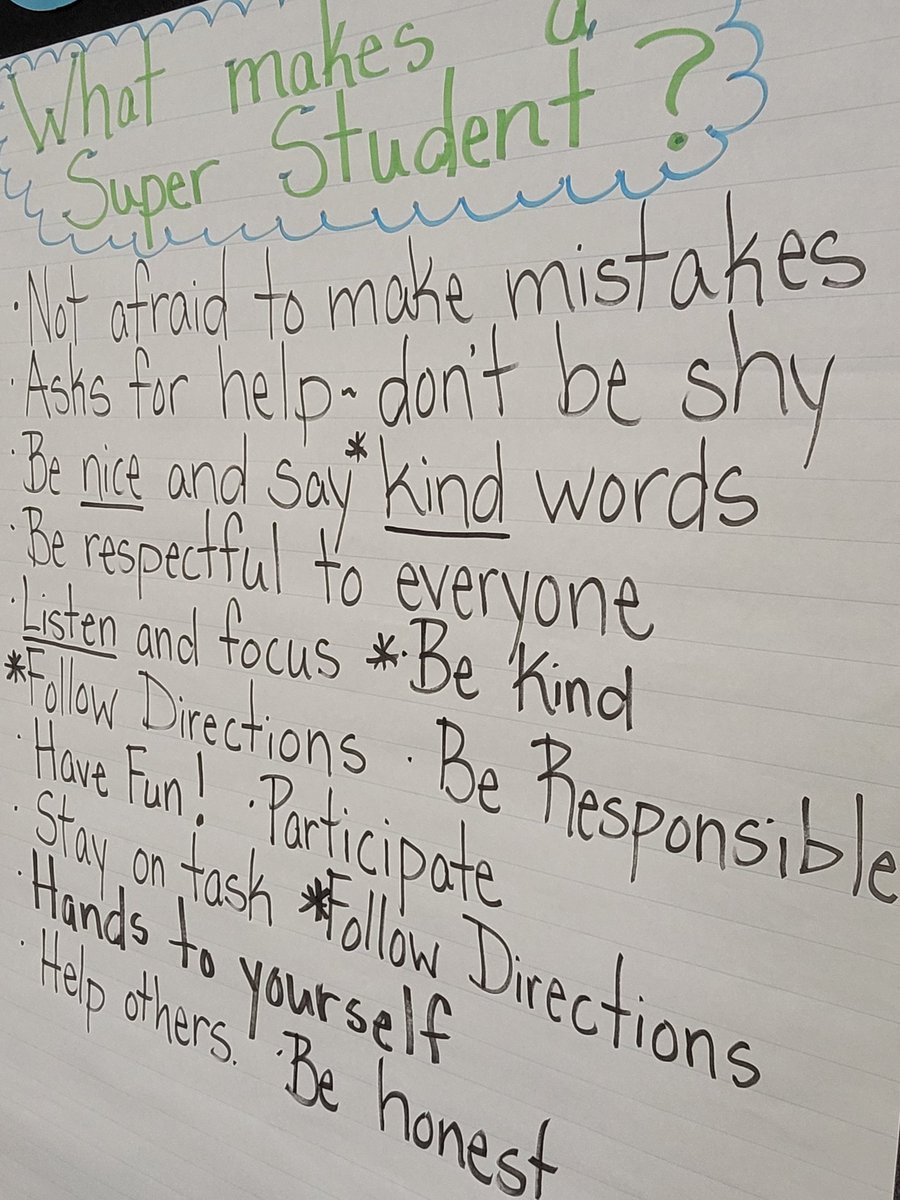 What makes a
Super Student?
·Not afraid to make mistakes
·Asks for help~don't be shy
·Be nice and say *kind words
·Be respectful to everyone
·Listen and focus *·Be Kind
*Follow Directions ·Be Responsible
·Have Fun! ·Participate
·Stay on task *Follow Directions
·Hands to yourself
·Help others. ·Be honest